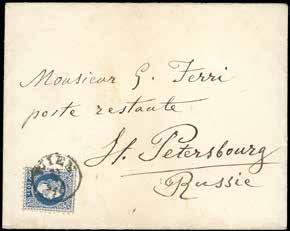 Monsieur G. Ferri
poste restante
St. Petersbourg
Russie
WIEN